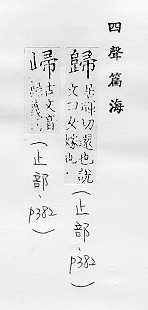 四聲篇海
歸
切還也說
文曰女嫁也
(止部、p382)
㱕
古文音
(止部、p382)